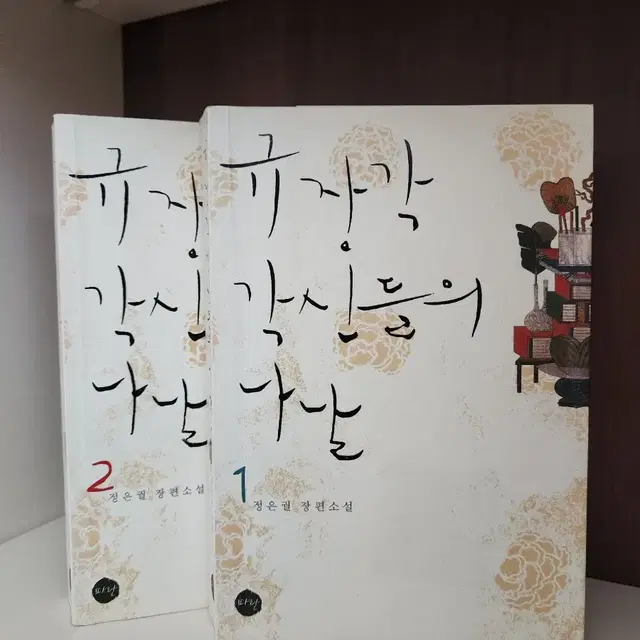 규장
각신
나날
2
정은궐 장편소설
파란
규장각
각신들의
나날
1
정은궐 장편소설
파란